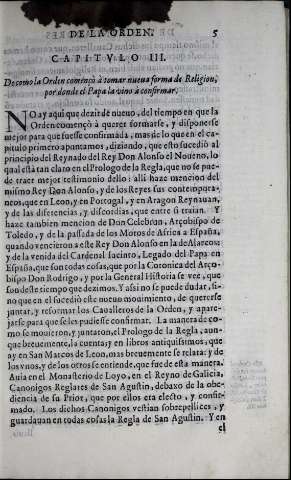 DE LA ORDEN. 5
CAPITVLO III.
De como la Orden començò à tomar nueua forma de Religion,
por donde el Papa la vino à confirmar.
NO ay aqui que dezir de nueuo, del tiempo en que la
Orden començò à querer formarse, y disponerse
mejor para que fuesse confirmada, mas de lo que en el ca-
pitulo primero apuntamos, diziendo, que esto sucediò al
principio del Reynado del Rey Don Alonso el Noueno, lo
qual està tan claro en el Prologo de la Regla, que no se pue-
de traer mejor testimonio dello: alli haze mencion del
mismo Rey Don Alonso, y de los Reyes sus contempora-
neos, que en Leon, y en Portugal, y en Aragon Reynauan,
y de las diferencias, y discordias, que entre si traian. Y
haze tambien mencion de Don Celebrun, Arçobispo de
Toledo, y de la passada de los Moros de Africa a España,
quando vencieron a este Rey Don Alonso en la de Alarcos:
y de la venida del Cardenal Jacinto, Legado del Papa en
España, que son todas cosas, que por la Coronica del Arço-
bispo Don Rodrigo, y por la General Historia se vee, que
son deste tiempo que dezimos. Y assi no se puede dudar, si-
no que en el sucediò este nueuo mouimiento, de quererse
juntar, y reformar los Caualleros de la Orden, y apare-
jarse para que se les pudiesse confirmar. La manera de co-
mo se mouieron, y juntaron, el Prologo de la Regla, aun-
que breuemente, la cuenta; y en libros antiquissimos, que
ay en San Marcos de Leon, mas breuemente se relata: y de
los vnos, y de los otros se entiende, que fue de esta manera.
Auia en el Monasterio de Loyo, en el Reyno de Galicia,
Canonigos Reglares de San Agustin, debaxo de la obe-
diencia de su Prior, que por ellos era electo, y confir-
mado. Los dichos Canonigos vestian sobrepellices, y
guardauan en todas cosas la Regla de San Agustin. Y en
el